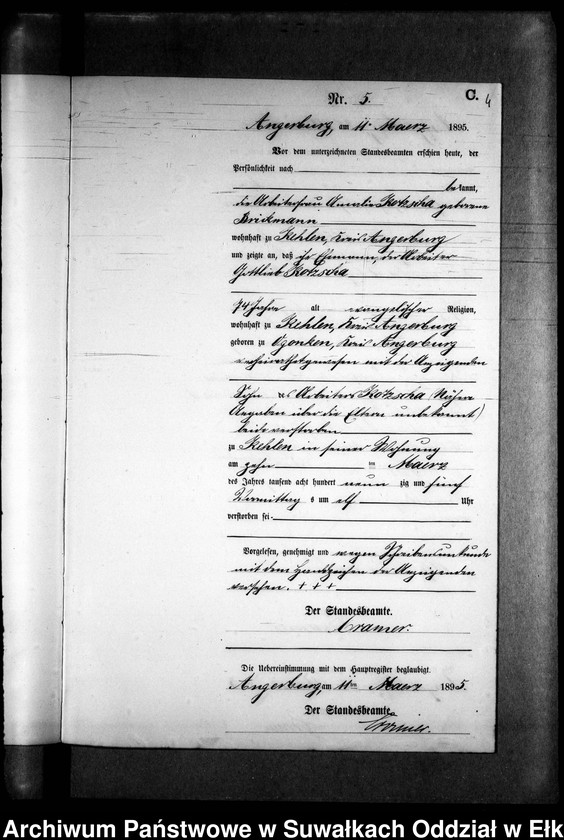 C. 4
Nr. 5.
Angerburg, am 11. Maerz 1895.
Vor dem unterzeichneten Standesbeamten erschien heute, der
Persönlichkeit nach
bekannt,
die Arbeiterfrau Amalie Kotzscha geborene
Brickmann
wohnhaft zu Kehlen, Kreis Angerburg
und zeigte an, daß ihr Ehemann, der Arbeiter
Gottlieb Kotzscha
74 Jahre alt evangelischer Religion,
wohnhaft zu Kehlen, Kreis Angerburg
geboren zu Ogonken, Kreis Angerburg
verheirathet gewesen mit der Anzeigenden
Sohn des Arbeiters Kotzscha (Nähere
Angaben über die Eltern unbekannt)
beide verstorben
zu Kehlen in seiner Wohnung
am zehn ten Maerz
des Jahres tausend acht hundert neun zig und fünf
Vormittag s um elf Uhr
verstorben sei.
Vorgelesen, genehmigt und wegen Schreibensunkunde
mit dem Handzeichen der Anzeigenden
versehen. + + +
Der Standesbeamte.
Cramer.
Die Uebereinstimmung mit dem Hauptregister beglaubigt.
Angerburg, am 11ten Maerz 1895.
Der Standesbeamte.
Cramer.
Archiwum Państwowe w Suwałkach Oddział w Ełk